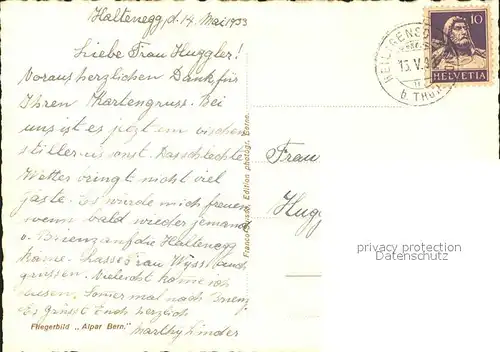 Haltenegg, d. 14. Mai 1933
Liebe Frau Huggler!
Voraus herzlichen Dank für
Ihren Kartengruss. Bei
uns ist es jetzt ein bischen
stiller als sonst. Das schlechte
Wetter bringt nicht viel
Gäste. Es würde mich freuen
wenn bald wieder jemand
v. Brienz auf die Haltenegg
käme. Lasse Frau Wyss auch
grüssen. Vieleicht komme ich
diesen Sommer mal nach Brienz
Es grüsst Euch herzlich
Marthy
Fliegerbild „Alpar Bern."
Edition photogr. Berne.
Frau
Hugg
10
HELVETIA
15.V.
b. THUN
privacy protection
Datenschutz